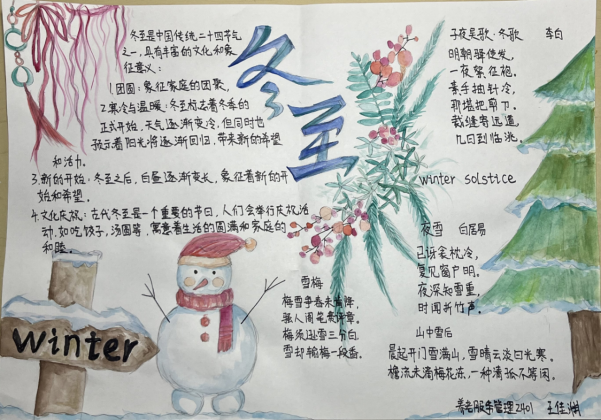 冬至是中国传统二十四节气
之一,具有丰富的文化和象
征意义:
1.团圆:象征家庭的团聚,
2.寒冷与温暖:冬至标志着冬季的
正式开始,天气逐渐变冷,但同时也
预示着阳光将逐渐回归,带来新的希望
和活力。
3.新的开始:冬至之后,白昼逐渐变长,象征着新的开
始和希望。
4.文化庆祝:古代冬至是一个重要的节日,人们会举行庆祝活
动,如吃饺子,汤圆等,寓意着生活的圆满和家庭的
和睦。
冬至
子夜吴歌·冬歌 李白
明朝驿使发,
一夜絮征袍。
素手抽针冷,
那堪把剪刀。
裁缝寄远道,
几日到临洮。
winter solstice
夜雪 白居易
已讶衾枕冷,
复见窗户明。
夜深知雪重,
时闻折竹声。
雪梅
梅雪争春未肯降,
骚人阁笔费评章。
梅须逊雪三分白
雪却输梅一段香。
山中雪后
晨起开门雪满山,雪晴云淡日光寒。
檐流未滴梅花冻,一种清孤不等闲。
winter
养老服务管理2401 王佳